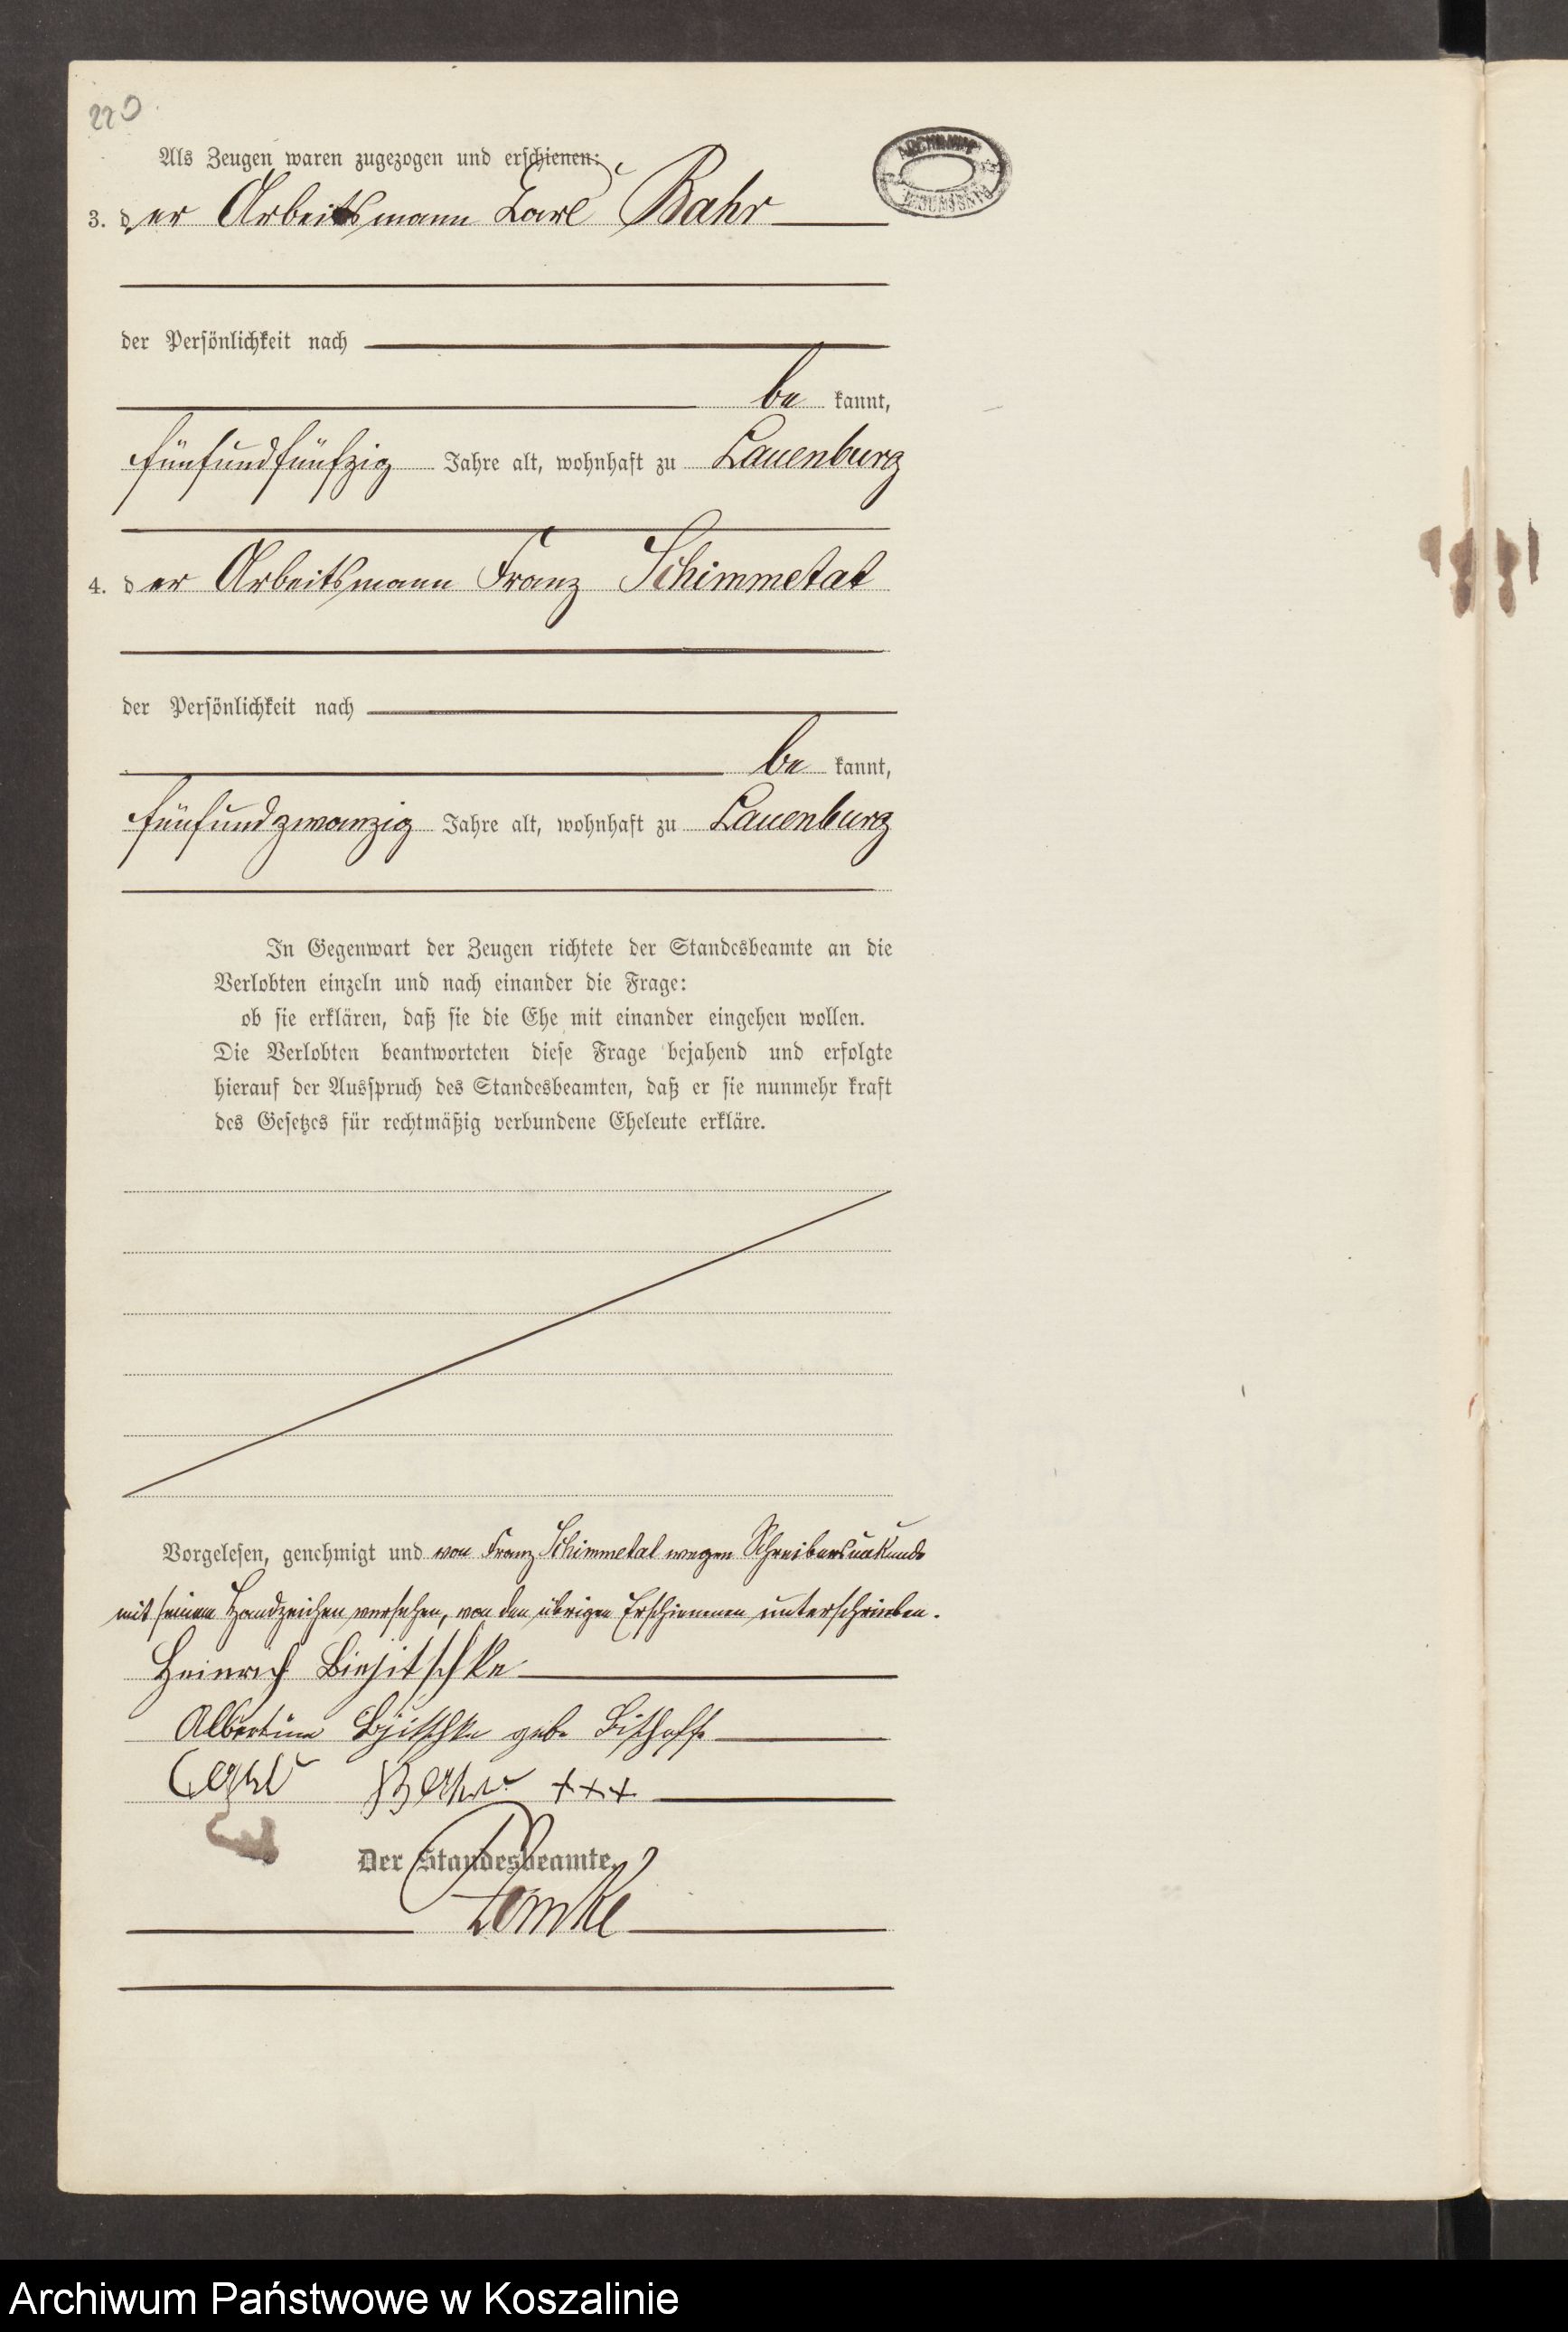 220
Als Zeugen waren zugezogen und erschienen:
3. der Arbeitsmann Carl Bahr
der Persönlichkeit nach
be kannt,
fünfundfünfzig Jahre alt, wohnhaft zu Lauenburg
4. der Arbeitsmann Franz Schimmetat
der Persönlichkeit nach
be kannt,
fünfundzwanzig Jahre alt, wohnhaft zu Lauenburg
In Gegenwart der Zeugen richtete der Standesbeamte an die
Verlobten einzeln und nach einander die Frage:
ob sie erklären, daß sie die Ehe mit einander eingehen wollen.
Die Verlobten beantworteten diese Frage bejahend und erfolgte
hierauf der Ausspruch des Standesbeamten, daß er sie nunmehr kraft
des Gesetzes für rechtmäßig verbundene Eheleute erkläre.
Vorgelesen, genehmigt und von Franz Schimmetat wegen Schreibensunkunde
mit seinem Handzeichen versehen, von den übrigen Erschienenen unterschrieben.
Heinrich
Albertine gebr Bischoff
Carl Bahr +++
Der Standesbeamte.
Lemke
Archiwum Państwowe w Koszalinie